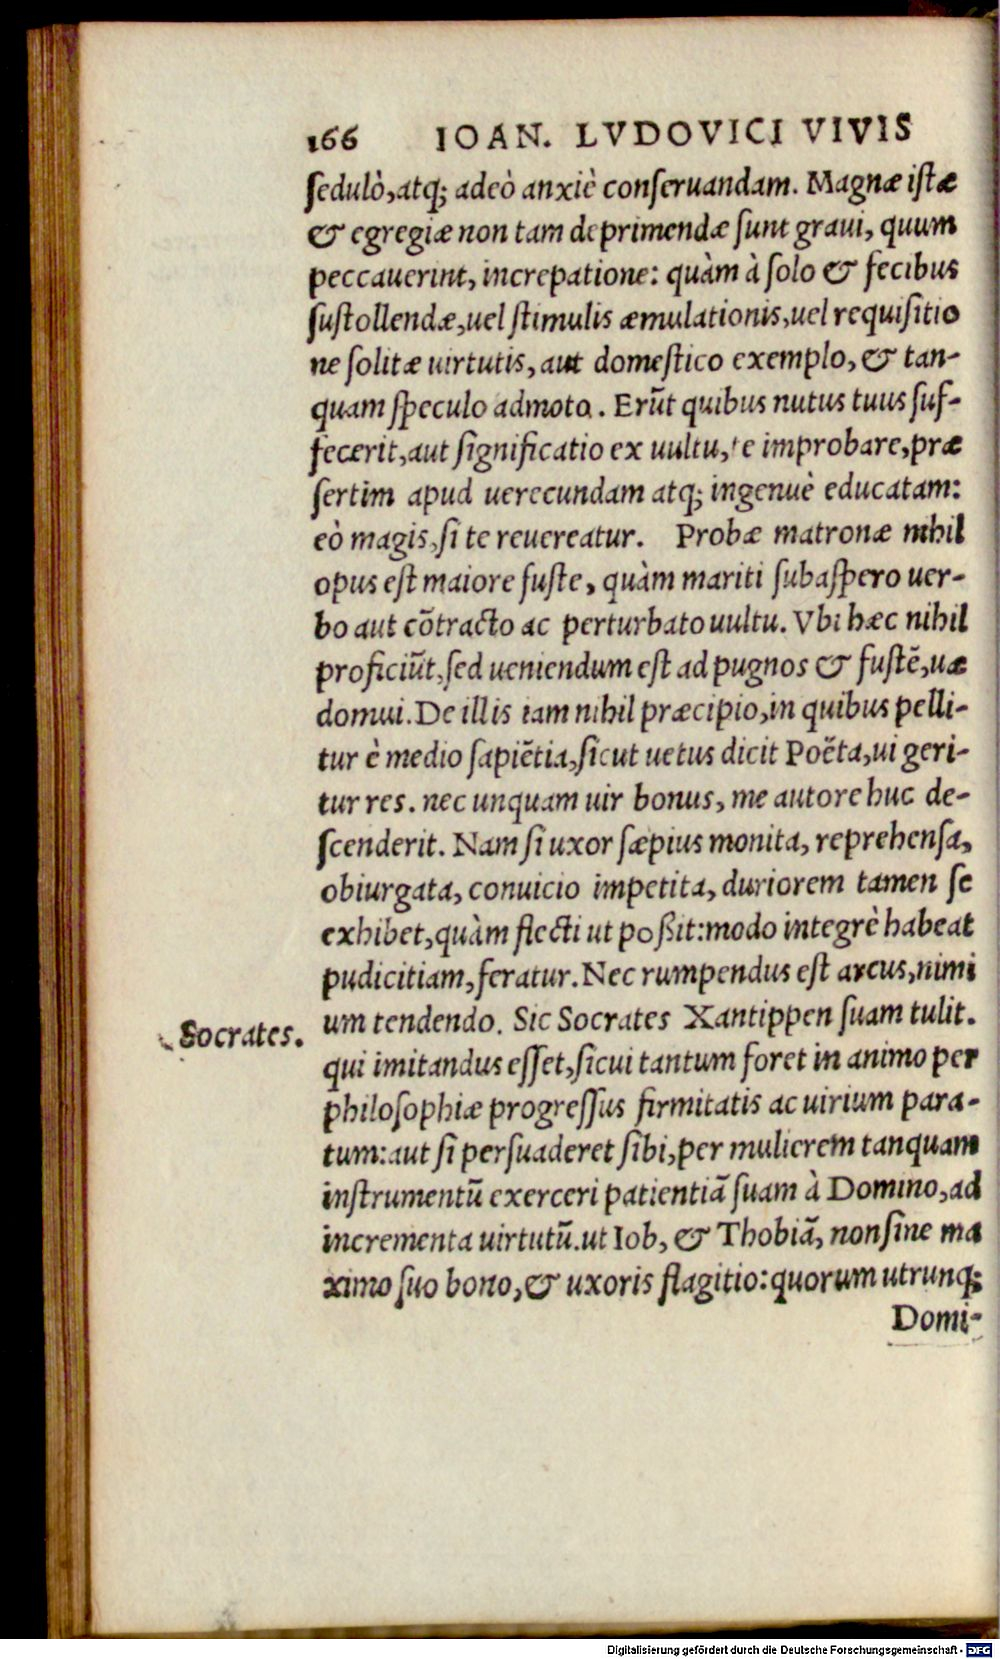 166 IOAN. LVDOVICI VIVIS
ſedulò, atq; adeò anxiè conſeruandam. Magnæ iſtæ
& egregiæ non tam deprimendæ ſunt graui, quum
peccauerint, increpatione: quàm à ſolo & fecibus
ſuſtollendæ, uel ſtimulis æmulationis, uel requiſitio
ne ſolitæ uirtutis, aut domeſtico exemplo, & tan-
quam ſpeculo admoto. Erũt quibus nutus tuus ſuf-
fecerit, aut ſignificatio ex uultu, te improbare, præ
ſertim apud uerecundam atq; ingenuè educatam:
eò magis, ſi te reuereatur. Probæ matronæ nihil
opus eſt maiore fuſte, quàm mariti ſubaſpero uer-
bo aut cõtracto ac perturbato uultu. Vbi hæc nihil
proficiũt, ſed ueniendum eſt ad pugnos & fuſtẽ, uæ
domui. De illis iam nihil præcipio, in quibus pelli-
tur è medio ſapiẽtia, ſicut uetus dicit Poẽta, ui geri-
tur res. nec unquam uir bonus, me autore huc de-
ſcenderit. Nam ſi uxor ſæpius monita, reprehenſa,
obiurgata, conuicio impetita, duriorem tamen ſe
exhibet, quàm flecti ut poßit: modo integrè habeat
pudicitiam, feratur. Nec rumpendus eſt arcus, nimi
um tendendo. Sic Socrates Xantippen ſuam tulit.
Socrates.
qui imitandus eſſet, ſicui tantum foret in animo per
philoſophiæ progreſſus firmitatis ac uirium para-
tum: aut ſi perſuaderet ſibi, per mulierem tanquam
inſtrumentũ exerceri patientiã ſuam à Domino, ad
incrementa uirtutũ. ut Iob, & Thobiã, non ſine ma
ximo ſuo bono, & uxoris flagitio: quorum utrunq;
Domi-
Digitalisierung gefördert durch die Deutsche Forschungsgemeinschaft - DFG